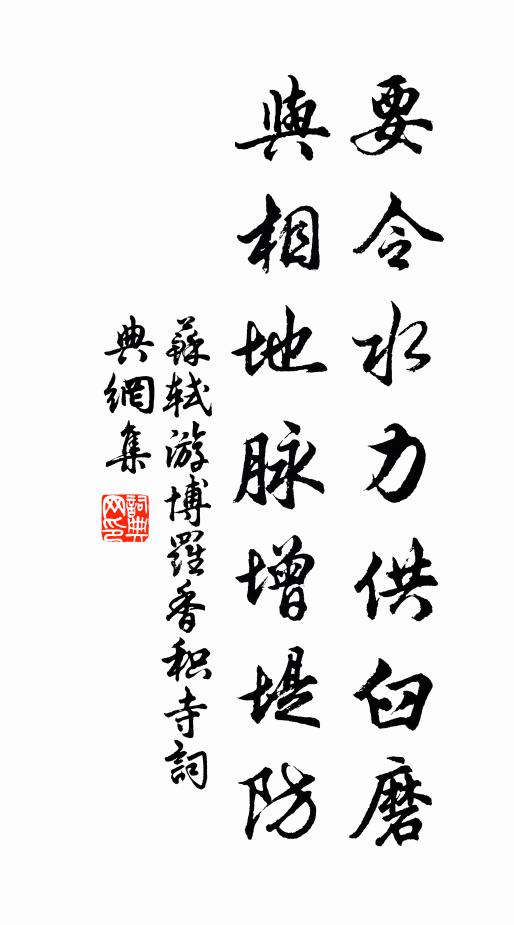 要令水力供臼磨
與相地脉增堤防
蘇軾游博羅香积寺詞
典網集
詞典
网印